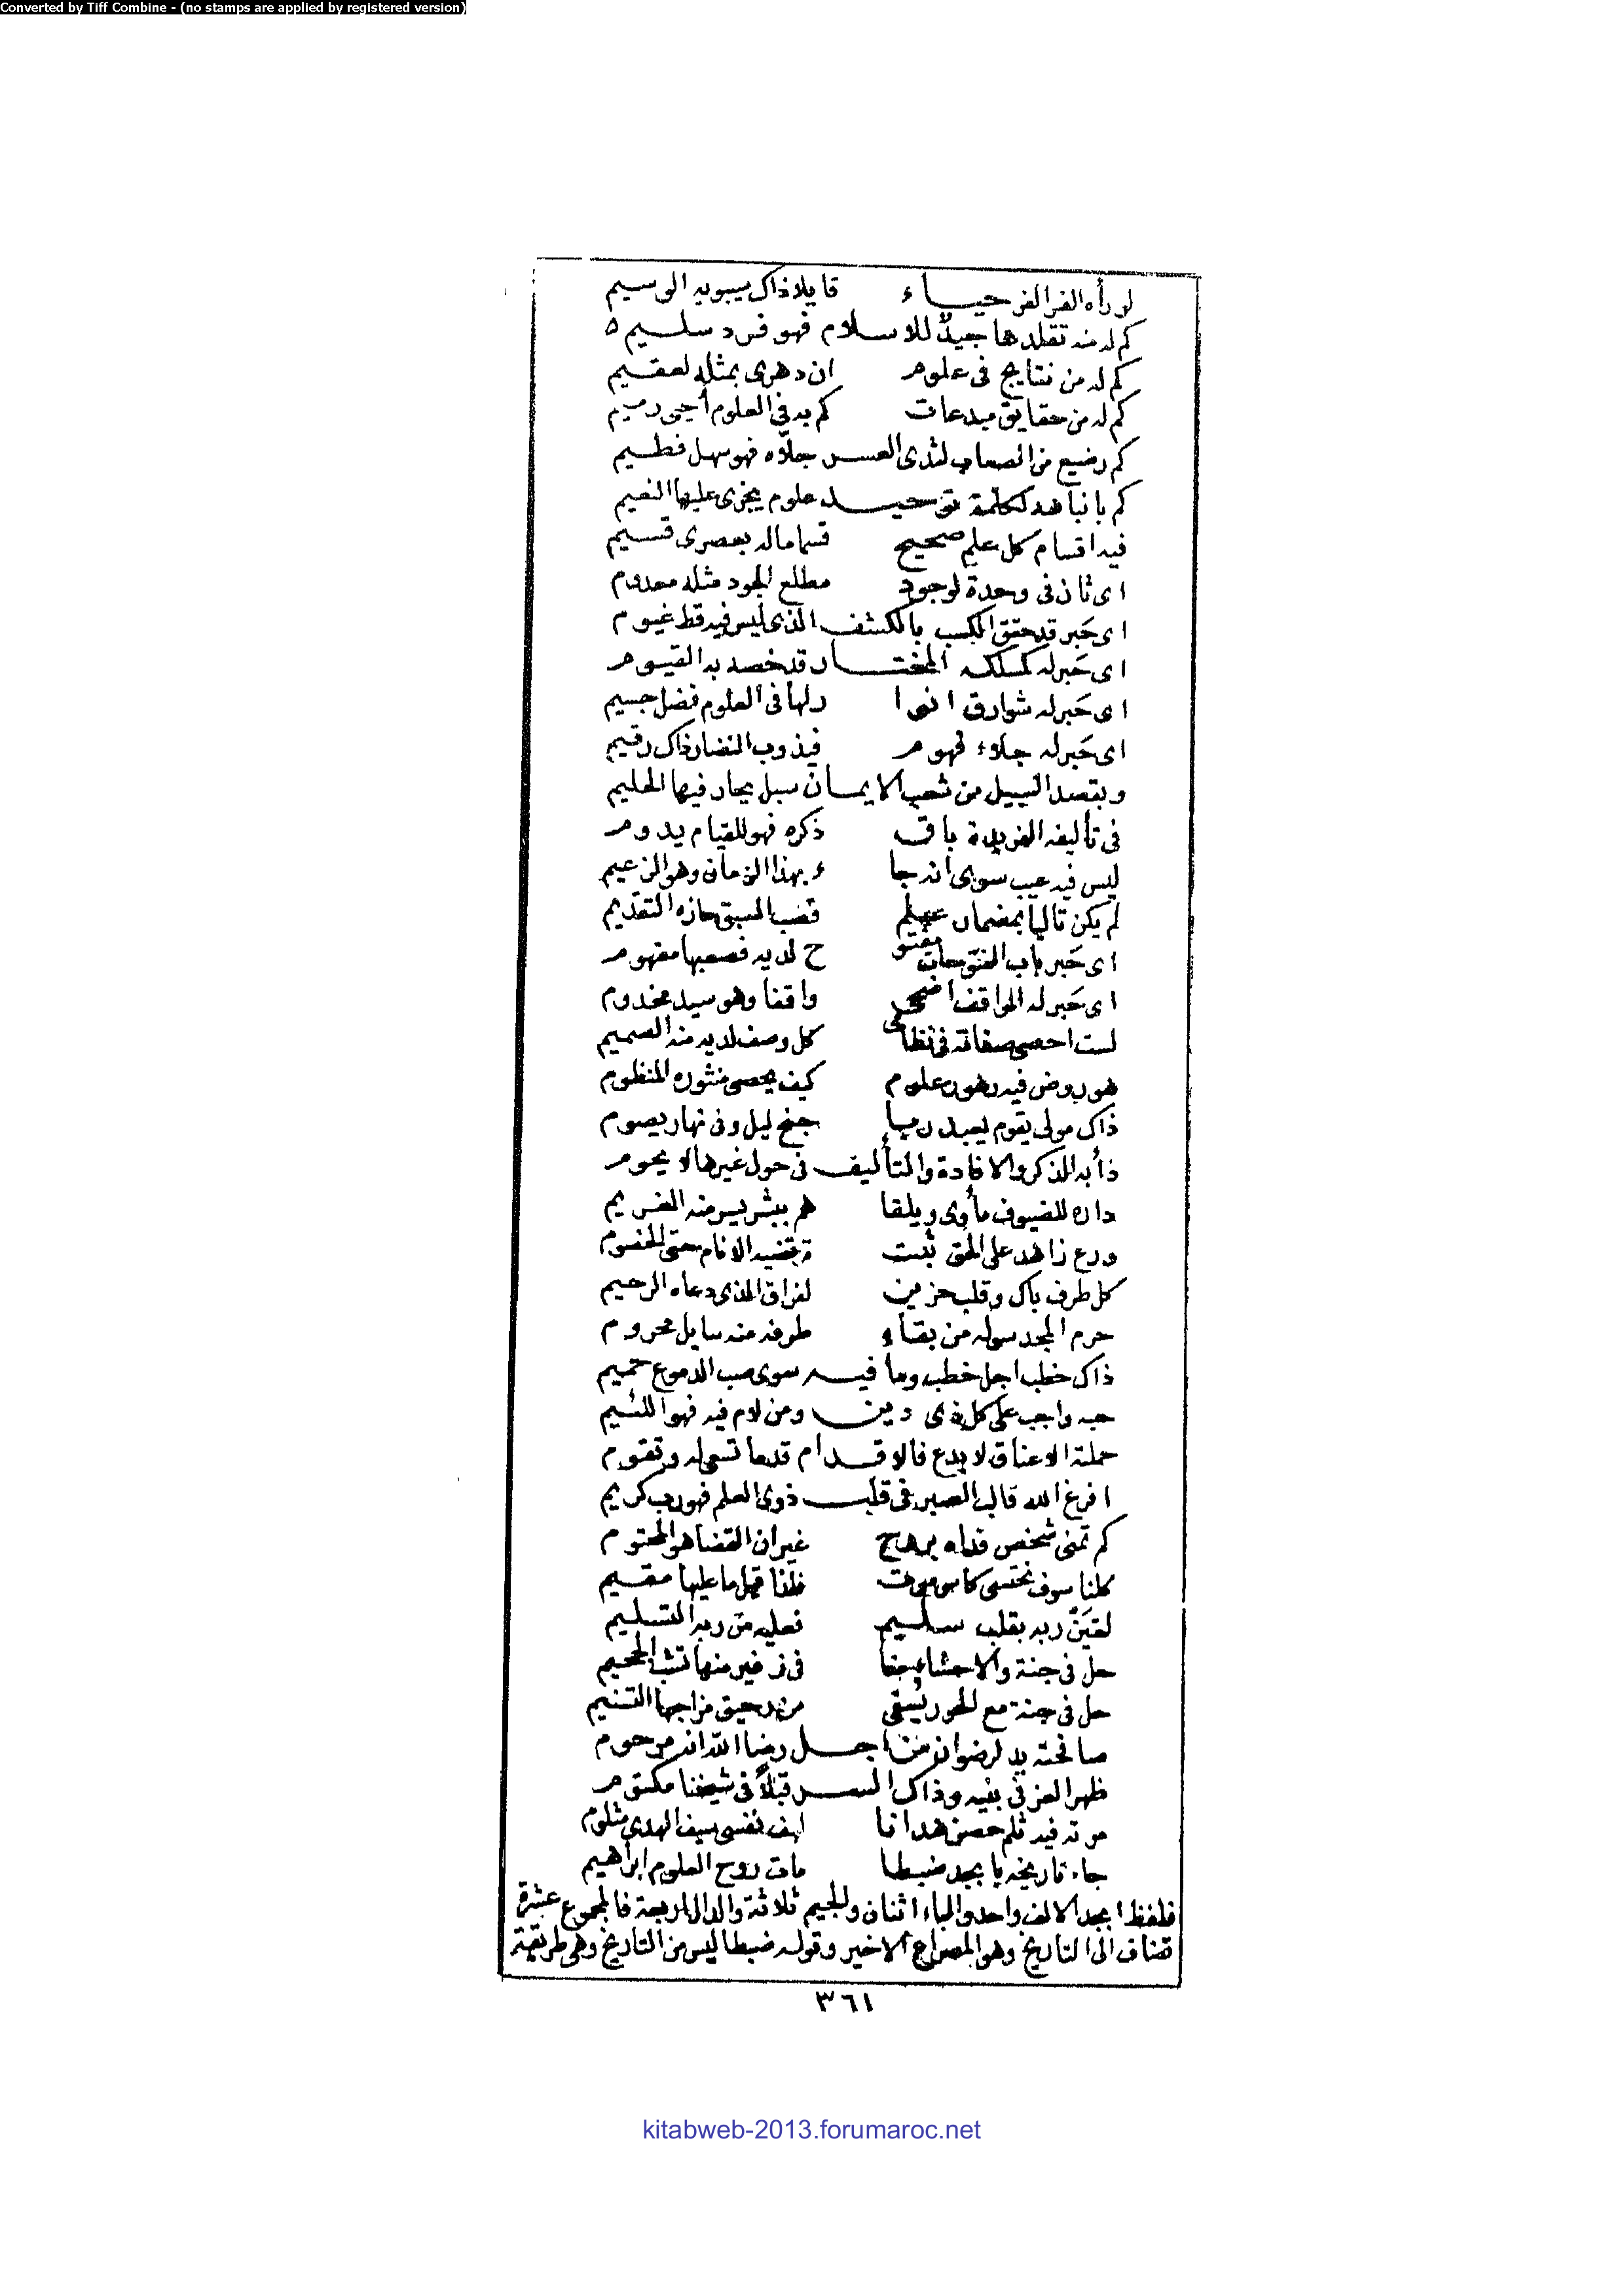 Converted by Tiff Combine - (no stamps are applied by registered version)
لو رأه الفر الفر حياء قايلا ذاك سيبويه الوسيم
كم له منه تقلدها جيد للاسلام فهو فرد سليم
كم له من نتايج في علوم ان دهرى بمثله لعقيم
كم له من حقايق مبدعات كم به في العلوم أحيى رميم
كم رضيع من الصعاب لثدى العسر جلاه فهو سهل فطيم
كم بانباهه لكلمة توحيد علوم يجزى عليها النعيم
فيه اقسام كل علم صحيح قسما ماله بعصرى قسيم
اى ثان في وحدة لوجود مطلع الجود مثله معدوم
اى حَبر قد حقق الكسب بالكشف الذى ليس فيه قط غيوم
اى حَبر له كمسلكه المختار قد خصه به القيوم
اى حَبر له شوارق انوا رلها في العلوم فضل جسيم
اى حَبر له جلاء فهوم فيذوب النضار ذاك رقيم
وبقصد السبيل من شعب الايمان سبل يحار فيها الحليم
في تأليفه الفريدة باق ذكره فهو للقيام يدوم
ليس فيه عيب سوى انه جا ء بهذا الزمان وهو الزعيم
لم يكن تاليا بمضمار علم قصب السبق حازه التقديم
اى حَبر باب الفتوحات مفتو ح لديه فصعبها مفهوم
اى حَبر له المواقف اضحى واقفا وهو سيد مخدوم
لست احصى صفاته في نظامى كل وصف لديه منه الصميم
هو روض فيه زهور علوم كيف يحصى منثوره المنظوم
ذاك مولى يقوم يعبد ربا جنح ليل وفي نهار يصوم
دأبه الذكر والافادة والتأليف في حول غيرها لا يحوم
داره للضيوف مأوى ويلقا هم ببشر يسر منه الغريم
ورع زاهد على الحق ثبت ترتضيه الانام حتى الخصوم
كل طرف باك وقلب حزين لفراق الذى دعاه الرحيم
حرم المجد سوله من بقاء طرفه منه سايل محروم
ذاك خطب اجل خطب وما فيه سوى صب الدموع حميم
حبه واجب على كل ذى دين ومن لام فيه فهو اللئيم
حملته الاعناق لا بدع فالاقدام قدما تسعى له وتقوم
افرغ الله قالب الصبر في قلب ذوى العلم فهو رب كريم
كم تمنى شخص فداه بروح غير ان القضا هو المحتوم
كلنا سوف نحتسى كاس موت فلذا قل ما عليها مقيم
لقيَنّ ربه بقلب سليم فعليه من ربه التسليم
حل في جنة والاحشاء منا في زفير منها تشب الجحيم
حل في جنة مع الحور يُسقى من رحيق مزاجها التسنيم
صافحته يد لرضوان من اجل رضا الله انه مرحوم
ظهر العز في بنيه وذاك السر قبلاً في شيخنا مكتوم
موته فيه ثلم حصن هدانا لهف نفسى سيف الهدى مثلوم
جاء تاريخه بابجد ضبطا مات روح العلوم ابراهيم
فلفظ ابجد الالف واحد والباء اثنان والجيم ثلاثة والدال اربعة فالمجموع عشرة
تضاف الى التاريخ وهو المصراع الاخير وقوله ضبطا ليس من التاريخ وهى طريقة
٣٦١
kitabweb-2013.forumaroc.net